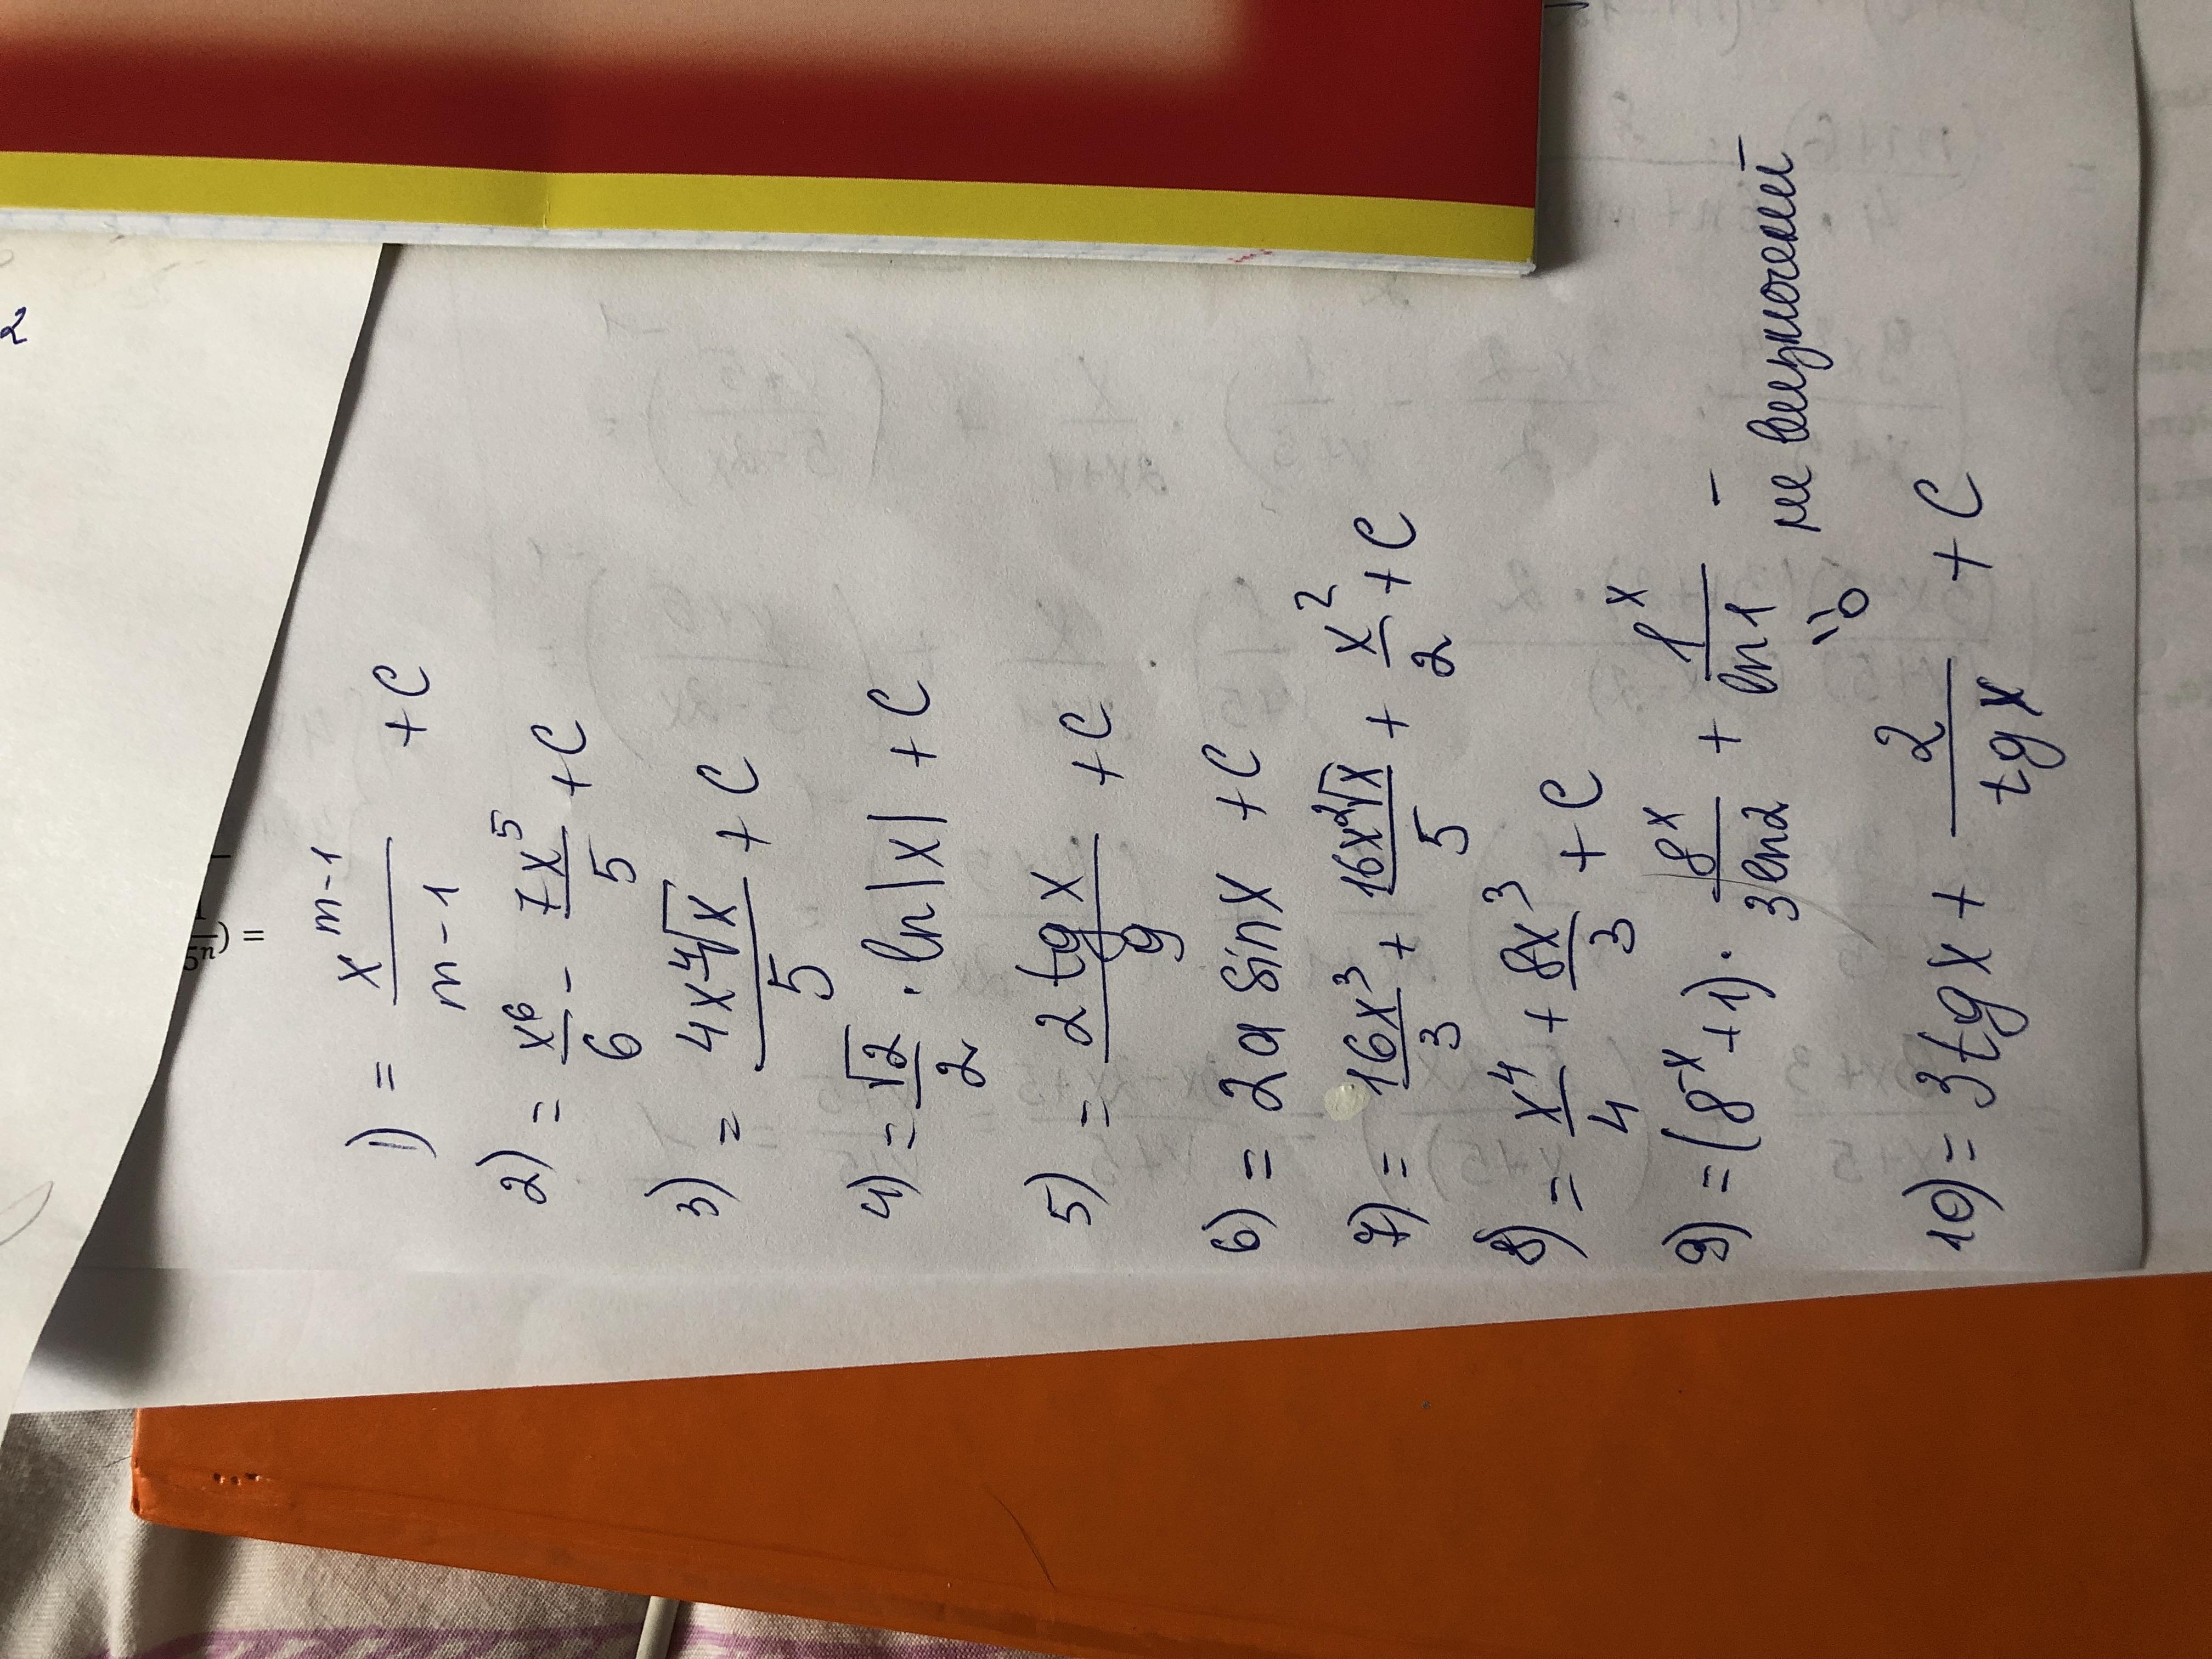 2
5ⁿ) =
1) = x^(m-1)/(m-1) + C
2) = x^6/6 - 7x^5/5 + C
3) = 4x ⁴√x/5 + C
4) = √2/2 · ln|x| + C
5) = 2 tg x/9 + C
6) = 2a sin x + C
7) = 16x^3/3 + 16x^2√x/5 + x^2/2 + C
8) = x^4/4 + 8x^3/3 + C
9) = (8^(-x) + 1) · 8^x/(3 ln2) + 1^x/ln1 -
не
"0
10) = 3tg x + 2/(tg x) + C